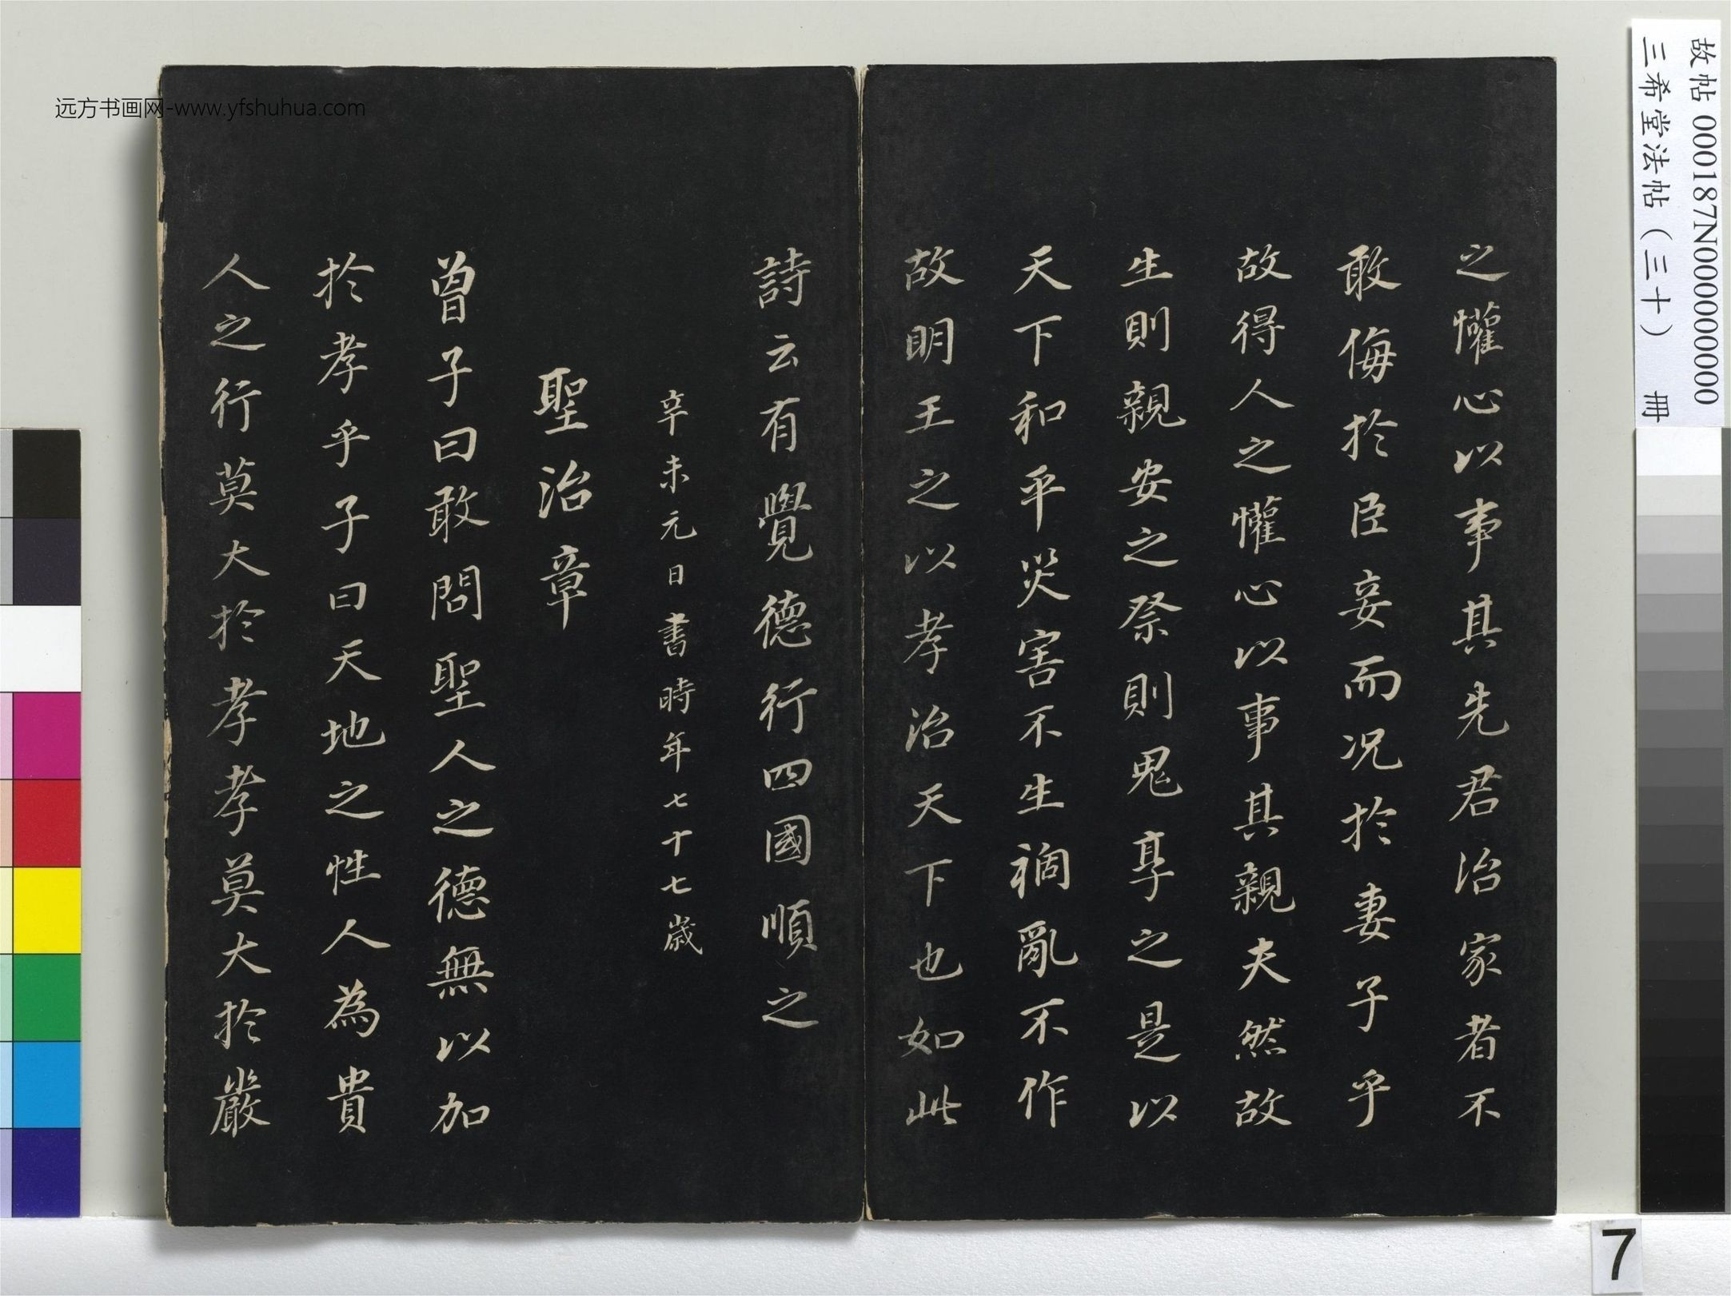 故帖 000187N000000000
三希堂法帖（三十） 冊
远方书画网-www.yfshuhua.com
之懽心以事其先君治家者不
敢侮於臣妾而况於妻子乎
故得人之懽心以事其親夫然故
生則親安之祭則鬼享之是以
天下和平災害不生禍亂不作
故明王之以孝治天下也如此
詩云有覺德行四國順之
辛未元日書時年七十七歲
聖治章
曾子曰敢問聖人之德無以加
於孝乎子曰天地之性人為貴
人之行莫大於孝孝莫大於嚴
7